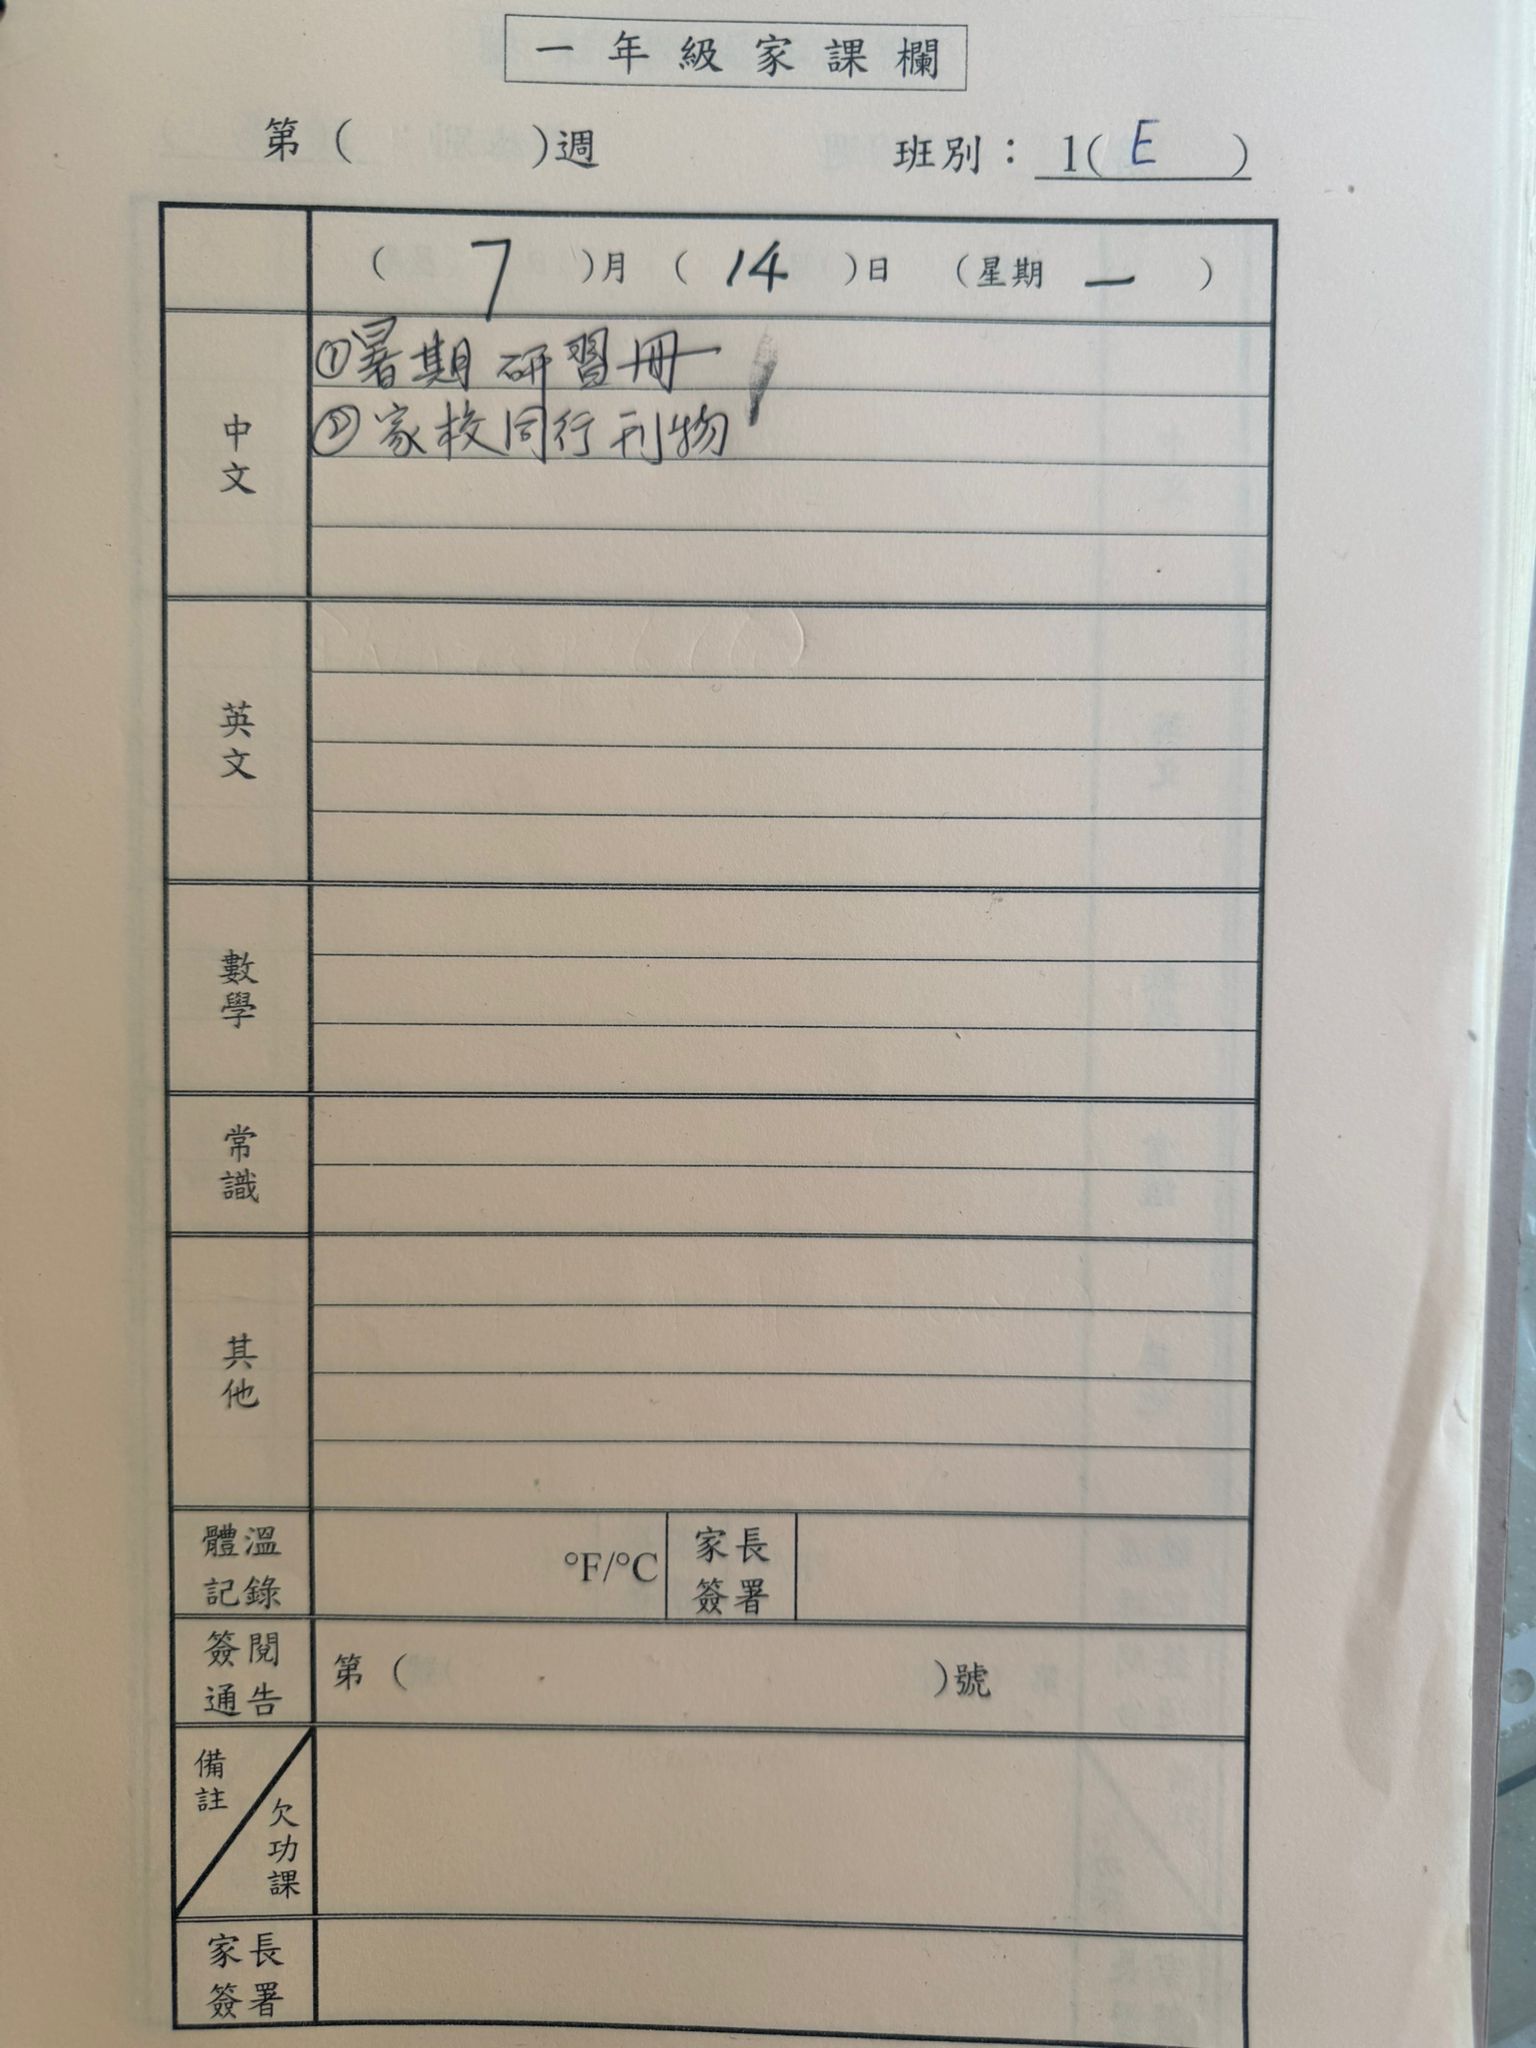 一年級家課欄
第（　　）週　　班別：1(E)
（7）月（14）日（星期一）
中文
①暑期研習冊
②家校同行刊物
英文
數學
常識
其他
體溫記錄　°F/°C　家長簽署
簽閱通告　第（　　）號
備註　欠功課
家長簽署